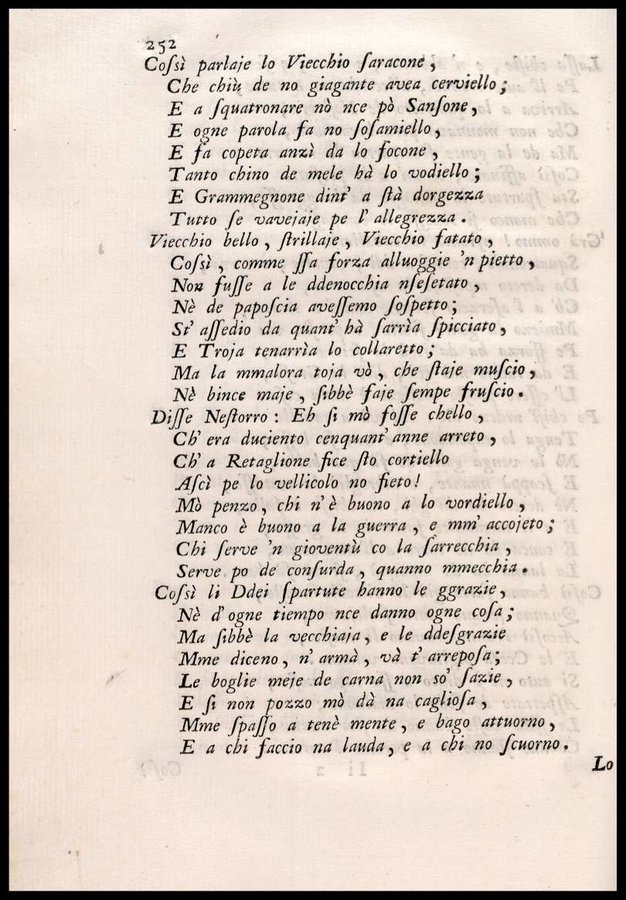 252
Coſsì parlaje lo Viecchio ſaracone,
Che chiù de no giagante avea cerviello;
E a ſquatronare nò nce pò Sanſone,
E ogne parola fa no ſoſamiello,
E fa copeta anzì da lo focone,
Tanto chino de mele hà lo vodiello;
E Grammegnone dint' a ſtà dorgezza
Tutto ſe vavejaje pe l' allegrezza.
Viecchio bello, ſtrillaje, Viecchio fatato,
Coſsì, comme ſſa forza alluoggie 'n pietto,
Non fuſſe a le ddenocchia nſeſetato,
Nè de papoſcia aveſſemo ſoſpetto;
St' aſſedio da quant' hà ſarrìa ſpicciato,
E Troja tenarrìa lo collaretto;
Ma la mmalora toja vò, che ſtaje muſcio,
Nè bince maje, ſibbè faje ſempe fruſcio.
Diſſe Neſtorro: Eh ſi mò foſſe chello,
Ch' era duciento cenquant' anne arreto,
Ch' a Retaglione fice ſto cortiello
Aſcì pe lo vellicolo no fieto!
Mò penzo, chi n' è buono a lo vordiello,
Manco è buono a la guerra, e mm' accojeto;
Chi ſerve 'n gioventù co la ſarrecchia,
Serve po de conſurda, quanno mmecchia.
Coſsì li Ddei ſpartute hanno le ggrazie,
Nè d' ogne tiempo nce danno ogne coſa;
Ma ſibbè la vecchiaja, e le ddeſgrazie
Mme diceno, n' armà, và t' arrepoſa;
Le boglie meje de carna non ſo' ſazie,
E ſi non pozzo mò dà na caglioſa,
Mme ſpaſſo a tenè mente, e bago attuorno,
E a chi faccio na lauda, e a chi no ſcuorno.
Lo